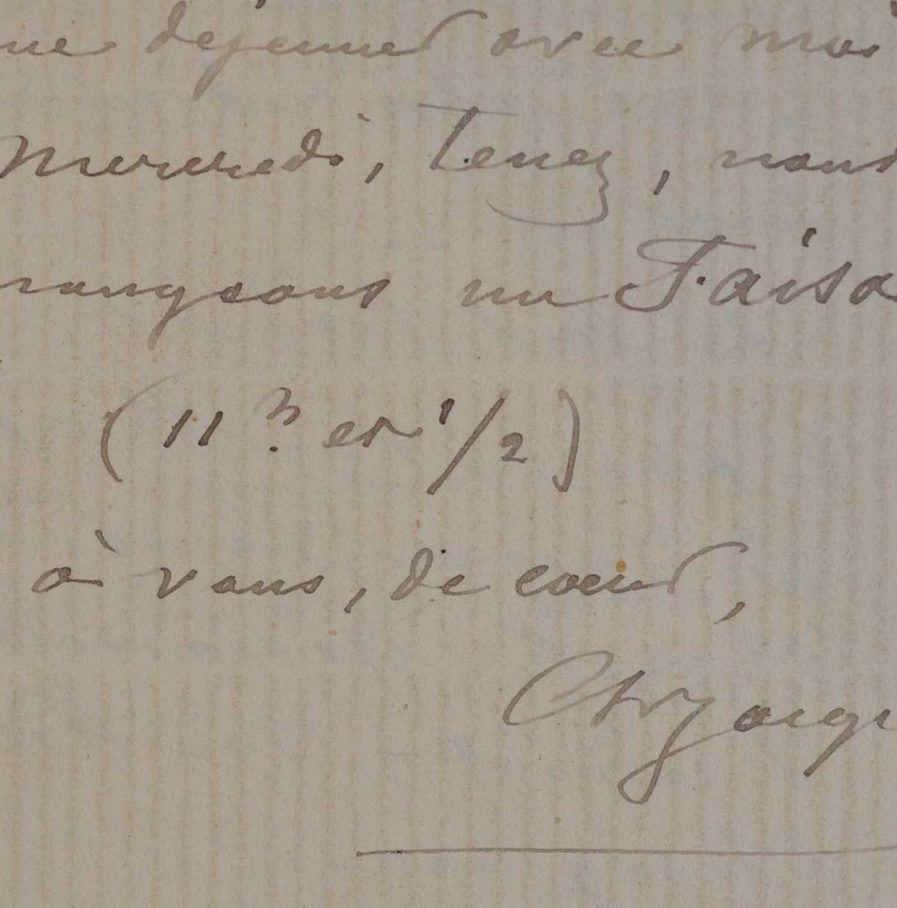 ne déjeuner avec moi
Mercredi, Tenez, nous
mangeons un Faisa
(11 h. et 1/2)
à vous, de cœur,